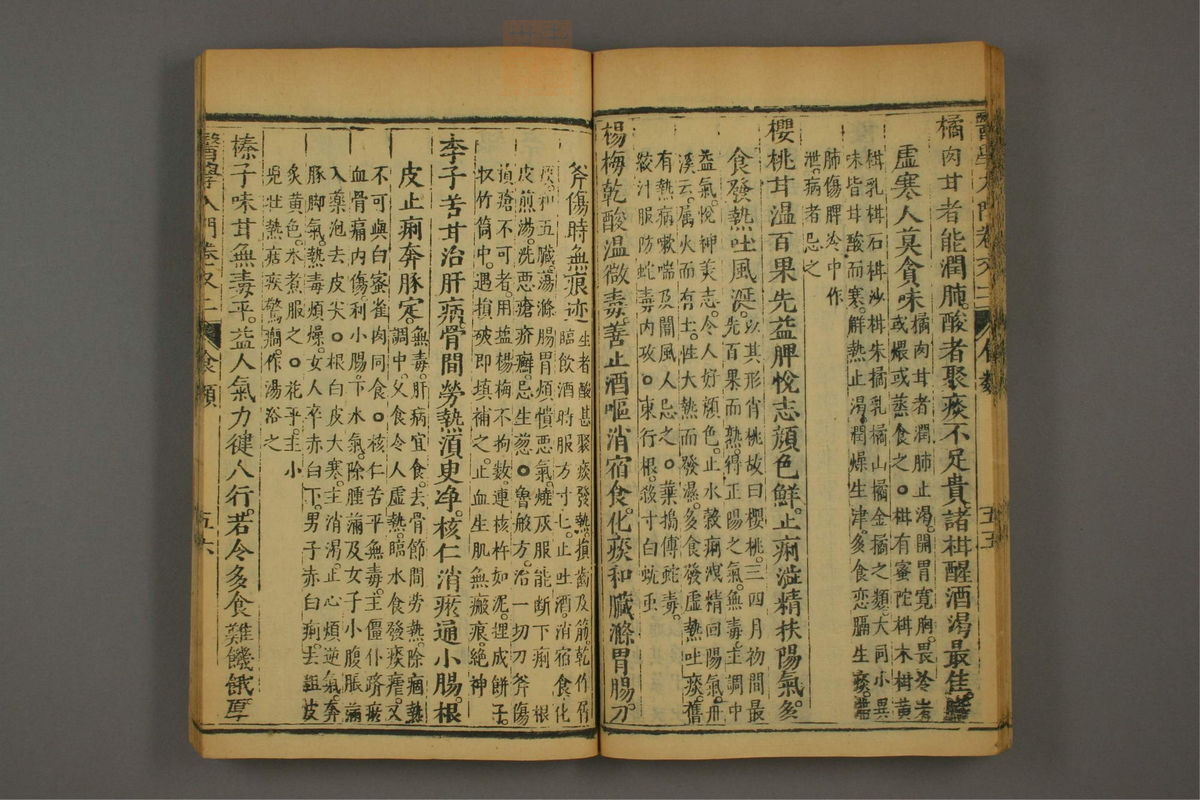 醫學入門卷之二 食類 五十五
橘肉甘者能潤肺酸者聚痰不足貴諸柑醒酒渴最佳
虛寒人莫貪味橘肉甘者潤肺止渴開胃寬胸畏冷者
或煨或蒸食之○柑有蜜陀柑木柑黃
柑乳柑石柑沙柑朱橘乳橘山橘金橘之類大同小異
味皆甘酸而寒解熱止渴潤燥生津多食恋膈生痰滯
肺傷脾冷中作
泄病者忌之
櫻桃甘温百果先益脾悅志顏色鮮止痢澁精扶陽氣多
食發熱吐風涎以其形肖桃故曰櫻桃三四月初間最
先百果而熟得正陽之氣無毒主調中
益氣悅神美志令人好顔色止水穀痢洩精回陽氣丹
溪云属火而有土性大熱而發濕多食發虛熱吐痰舊
有熱病嗽喘及闇風人忌之○葉搗傅蛇毒
絞汁服防蛇毒内攻○東行根殺寸白蚘虫
楊梅乾酸温微毒善止酒嘔消宿食化痰和臟滌胃腸刀
斧傷時無痕迹生者酸甚聚痰發熱損齒及筋乾作屑
臨飲酒時服方寸七止吐酒消宿食化
痰和五臓蕩滌腸胃煩憒惡氣燒灰服能断下痢 根
皮煎湯洗悪瘡疥癬忌生葱○魯般方治一切刀斧傷
損瘡不可者用塩楊梅不拘数連核杵如泥捏成餅子
収竹筒中遇損破即填補之止血生肌無瘢痕絶神
李子苦甘治肝病骨間勞熱湏史净核仁消瘀通小腸根
皮止痢奔豚定無毒肝病宜食去骨節間劳熱除痼熱
調中久食令人虛熱臨水食發痰瘧又
不可與白蜜雀肉同食○核仁苦平無毒主僵仆躋瘀
血骨痛内傷利小腸下水氣除腫滿及女子小腹脹滿
入藥泡去皮尖○根白皮大寒主消渴止心煩逆氣奔
豚脚氣熱毒煩燥女人卒赤白下男子赤白痢去𥻘皮
炙黄色水煮服之○花平主小
兒壮熱痁疾驚癎作湯浴之
榛子味甘無毒平益人氣力健人行若令多食難饑餓厚
醫學入門卷又二 食類 五十六